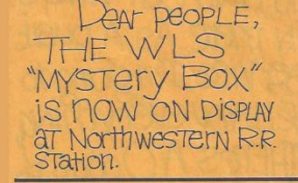 Dear people,
THE WLS
"MYSTery BOX"
IS NOW ON DISPLAY
aT NorThwesTerN R.R.
STaTion.